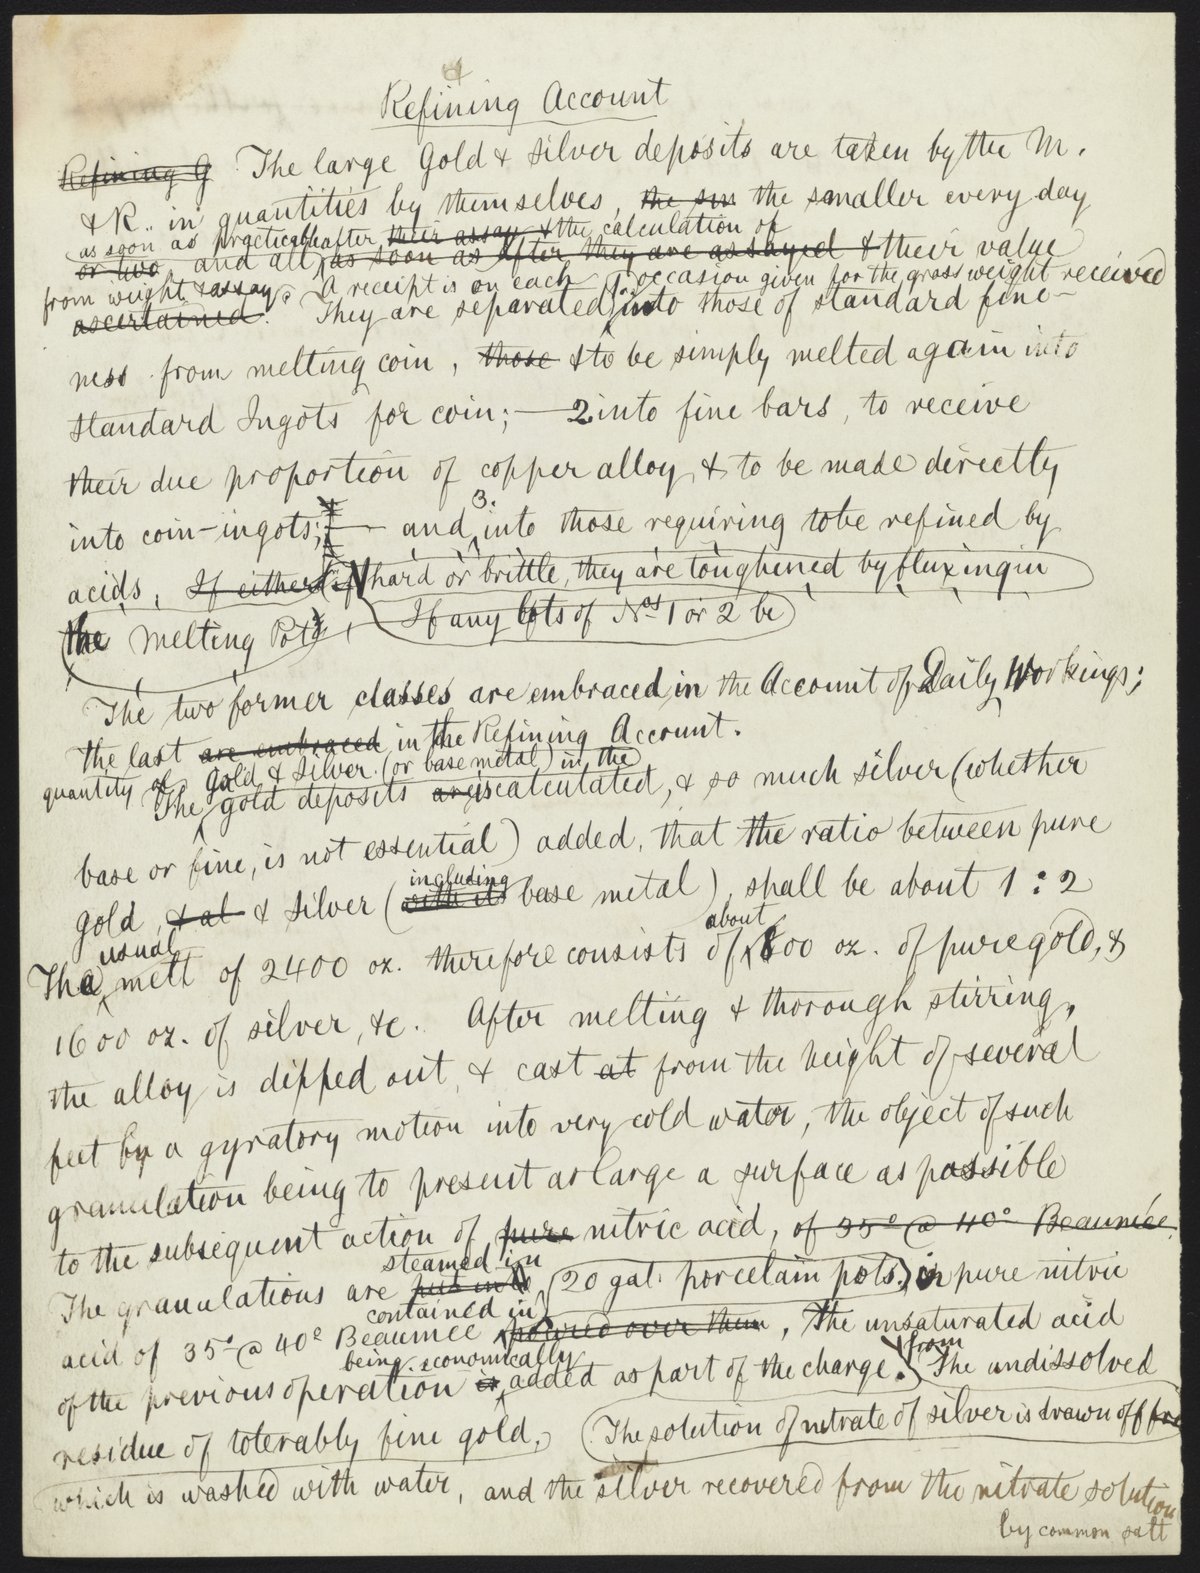 Refining Account
Refining G The large Gold & Silver deposits are taken by the M.
& R.. in quantities by themselves, the sm the smaller every day
as soon as practicable after their assay & the calculation of
or two, and all, as soon as After they are assayed & their value
from weight & assay. A receipt is on each occasion given for the gross weight received
ascertained. They are separated 1. into those of standard fine-
ness from melting coin, those & to be simply melted again into
standard Ingots for coin; — 2 into fine bars, to receive
their due proportion of copper alloy, & to be made directly
into coin-ingots; — and 3. into those requiring to be refined by
acids, If either is hard or brittle, they are toughened by fluxing in
the melting Pots, If any lots of Nos 1 or 2 be
The two former classes are embraced in the Account of Daily Workings;
the last are embraced in the Refining Account.
quantity of Gold & Silver (or base metal) in the
The gold deposits are is calculated, & so much silver (whether
base or fine, is not essential) added, that the ratio between pure
including
gold, & al & silver (with its base metal), shall be about 1 : 2
usual about
The melt of 2400 oz. therefore consists of 800 oz. of pure gold, &
1600 oz. of silver, &c. After melting & thorough stirring,
the alloy is dipped out, & cast at from the height of several
feet by a gyratory motion into very cold water, the object of such
granulation being to present as large a surface as possible
to the subsequent action of pure nitric acid, of 35° @ 40° Beaumée.
steamed in
The granulations are put in 20 gal. porcelain pots, in pure nitric
contained in
acid of 35° @ 40° Beaumée poured over them, the unsaturated acid
being economically from
of the previous operation is added as part of the charge. The undissolved
residue of tolerably fine gold, The solution of nitrate of silver is drawn off fro
which is washed with water, and the silver recovered from the nitrate solution
by common salt